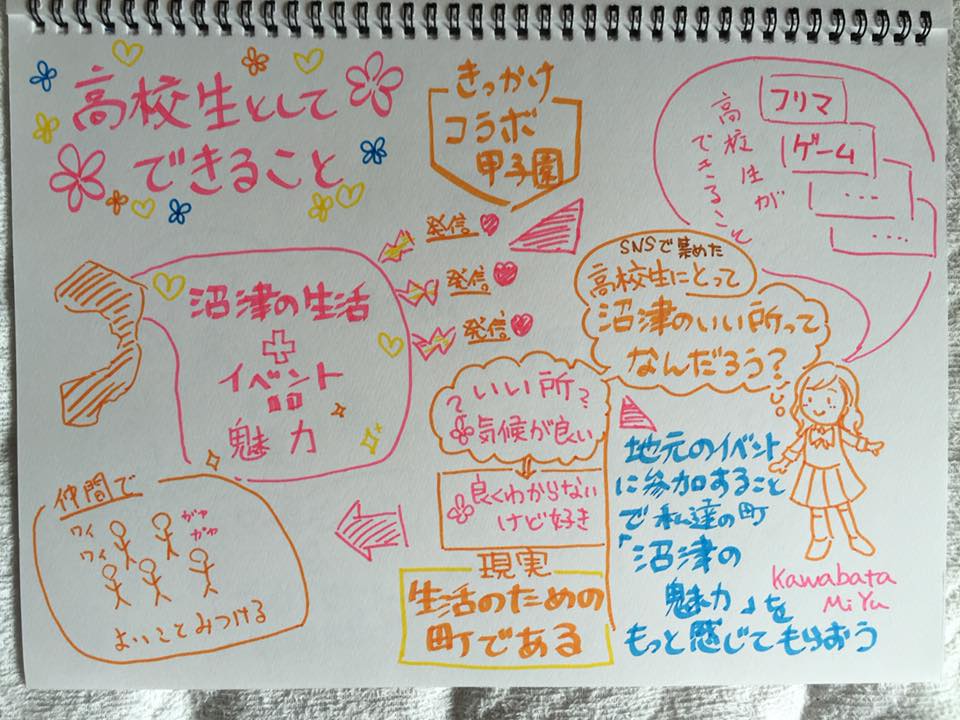 高校生として
できること
きっかけ
コラボ
甲子園
高校生が
できること
フリマ
ゲーム
...
...
発信
発信
発信
沼津の生活
+
イベント
=
魅力
SNSで集めた
高校生にとって
沼津のいい所って
なんだろう?
?いい所?
気候が良い
良くわからない
けど好き
現実
生活のための
町である
地元のイベント
に参加すること
で私達の町
「沼津の
魅力」を
もっと感じてもらおう
Kawabata
MiYu
仲間で
ワイ
ワイ
ガヤ
ガヤ
よいことみつける